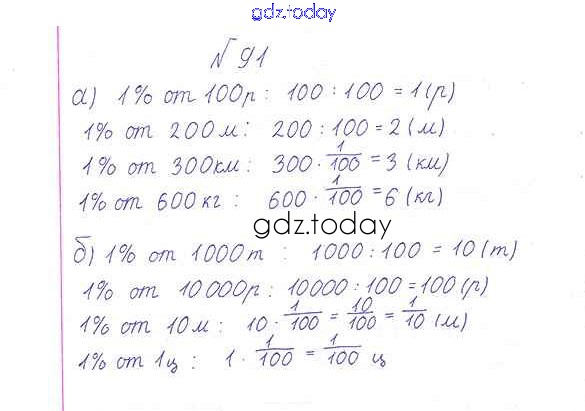 gdz.today
№ 91
а) 1% от 100р : 100 : 100 = 1 (р)
1% от 200 м : 200 : 100 = 2 (м)
1% от 300км : 300 · 1/100 = 3 (км)
1% от 600 кг : 600 · 1/100 = 6 (кг)
gdz.today
б) 1% от 1000 т : 1000 : 100 = 10 (т)
1% от 10 000р : 10000 : 100 = 100 (р)
1% от 10 м : 10 · 1/100 = 10/100 = 1/10 (м)
1% от 1 ц : 1 · 1/100 = 1/100 ц